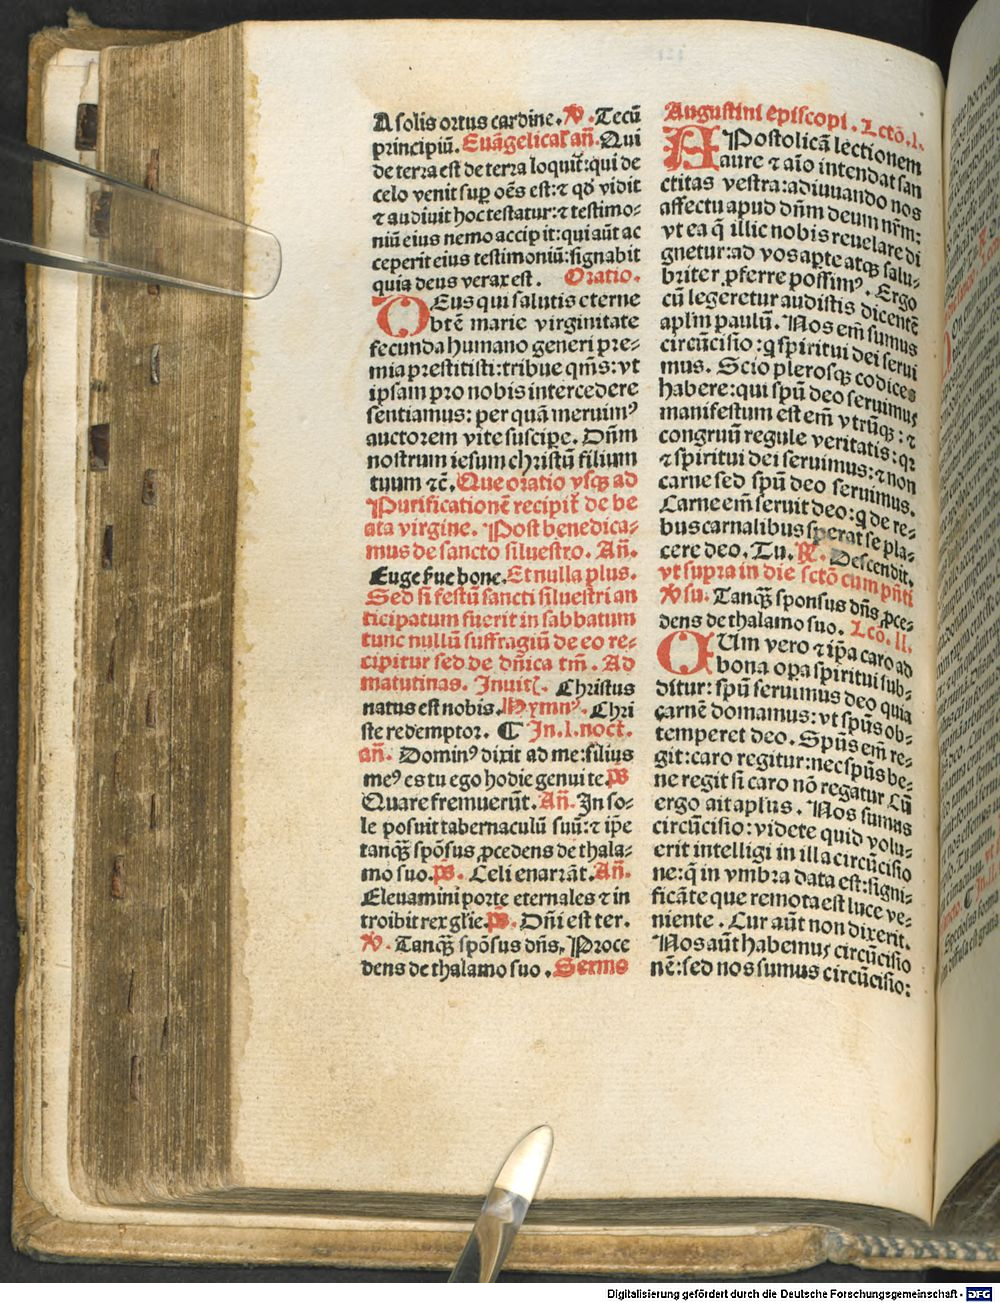 A solis ortus cardine. ℣. Tecū
principiū. Euāgelical' añ. Qui
de terra est de terra loquit̄: qui de
celo venit sup oēs est: ⁊ qd̓ vidit
⁊ audiuit hoc testatur: ⁊ testimo-
niū eius nemo accipit: qui aūt ac
ceperit eius testimoniū: signabit
quia deus verax est. Oratio.
DEus qui salutis eterne
btē marie virginitate
fecunda humano generi pre-
mia prestitisti: tribue qm̄s: vt
ipsam pro nobis intercedere
sentiamus: per quā meruimꝰ
auctorem vite suscipe. Dn̄m
nostrum iesum christū filium
tuum ⁊c̄. Que oratio vsqꝫ ad
Purificationē recipit̄ de be
ata virgine. Post benedica-
mus de sancto siluestro. Añ.
Euge s̄ue bone. Et nulla plus.
Sed si festū sancti siluestri an
ticipatum fuerit in sabbatum
tunc nullū suffragiū de eo re-
cipitur sed de dn̄ica tm̄. Ad
matutinas. Inuit̄. Christus
natus est nobis. Hymnꝰ. Chri
ste redemptor. ¶ In .I. noct.
añ. Dominꝰ dixit ad me: filius
meꝰ es tu ego hodie genui te. p̄s
Quare fremuerūt. Añ. In so-
le posuit tabernaculū suū: ⁊ ip̄e
tanqꝫ spōsus ꝓcedens de thala-
mo suo. p̄s. Celi enarrāt. Añ.
Eleuamini porte eternales ⁊ in
troibit rex gl̄ie. p̄s. Dn̄i est ter.
℣. Tanqꝫ spōsus dn̄s. Proce
dens de thalamo suo. Sermo
Augustini episcopi. Lctō. I.
APostolicā lectionem
aure ⁊ aīo intendat san
ctitas vestra: adiuuando nos
affectu apud dn̄m deum nr̄m:
vt ea q̄ illic nobis reuelare di
gnetur: ad vos apte atqꝫ salu-
briter ꝓferre possimꝰ. Ergo
cū legeretur audistis dicentē
apl̄m paulū. Nos em̄ sumus
circūcisio: q̄ spiritui dei serui
mus. Scio plerosqꝫ codices
habere: qui spū deo seruimus
manifestum est em̄ vtrūqꝫ: ⁊
congruū regule veritatis: qꝛ
⁊ spiritui dei seruimus: ⁊ non
carne sed spū deo seruimus.
Carne em̄ seruit deo: q̄ de re-
bus carnalibus sperat se pla-
cere deo. Tu. ℟. Descendit.
vt supra in die sctō cum pn̄ti
℣su. Tanqꝫ sponsus dn̄s ꝓce-
dens de thalamo suo. Lcō. II.
CUm vero ⁊ ip̄a caro ad
bona opa spiritui sub-
ditur: spū seruimus deo quia
carnē domamus: vt spūs ob-
temperet deo. Spūs em̄ re-
git: caro regitur: nec spūs be-
ne regit si caro nō regatur Cū
ergo ait apl̄us. Nos sumus
circūcisio: videte quid volu-
erit intelligi in illa circūcisio
ne: q̄ in vmbra data est: signi-
ficāte que remota est luce ve-
niente. Cur aūt non dixerit.
Nos aūt habemus circūcisio
nē: sed nos sumus circūcisio:
Digitalisierung gefördert durch die Deutsche Forschungsgemeinschaft - DFG